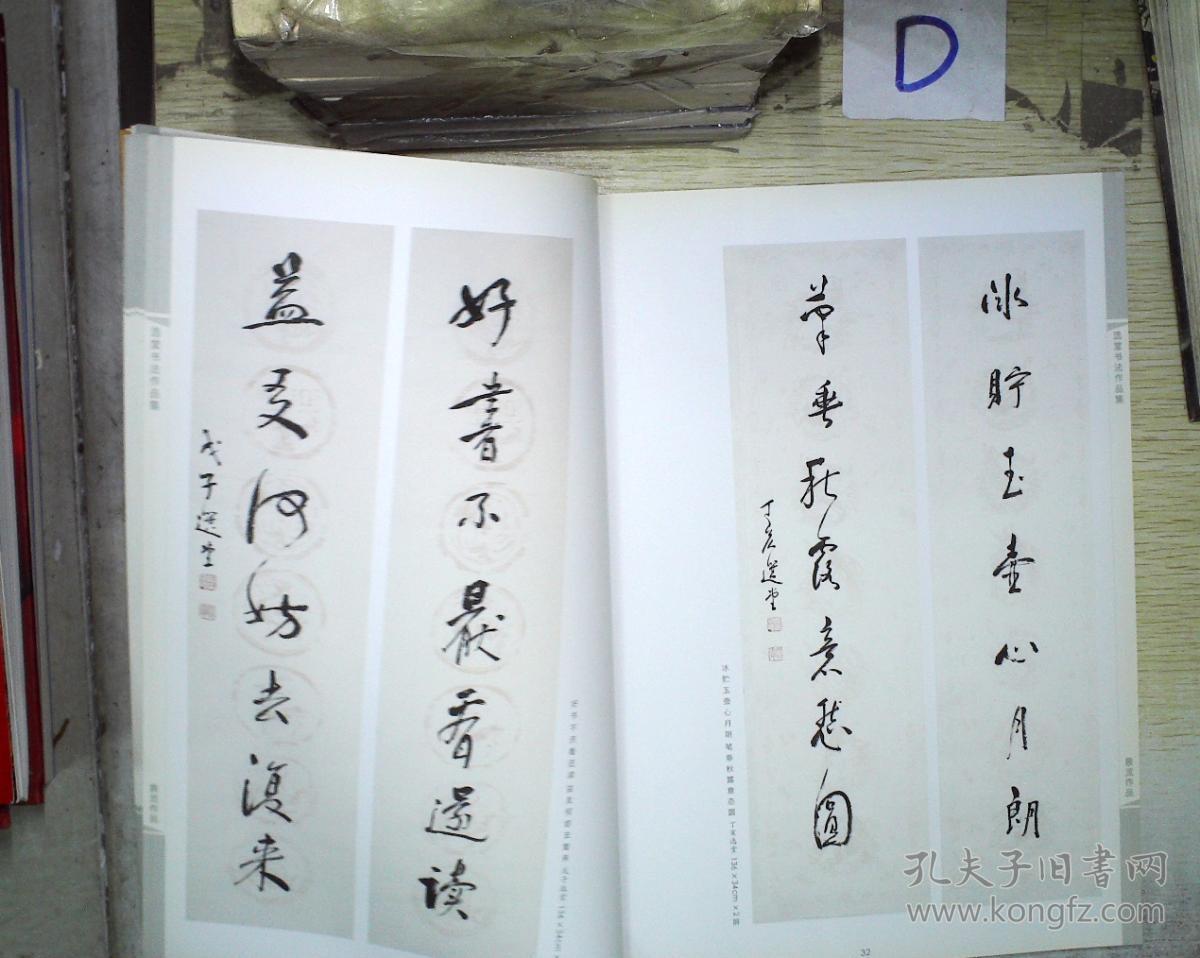 D
选堂书法作品集
冰貯玉壺心月朗
筆垂秋露意態圓
丁亥選堂
冰贮玉壶心月朗 笔垂秋露意态圆 丁亥选堂 136×34cm×2屏
32
好書不厭看還读
益友何妨去復来
戊子選堂
好书不厌看还读 益友何妨去复来 戊子选堂 136×34cm×
选堂书法作品集
孔夫子旧書网
www.kongfz.com